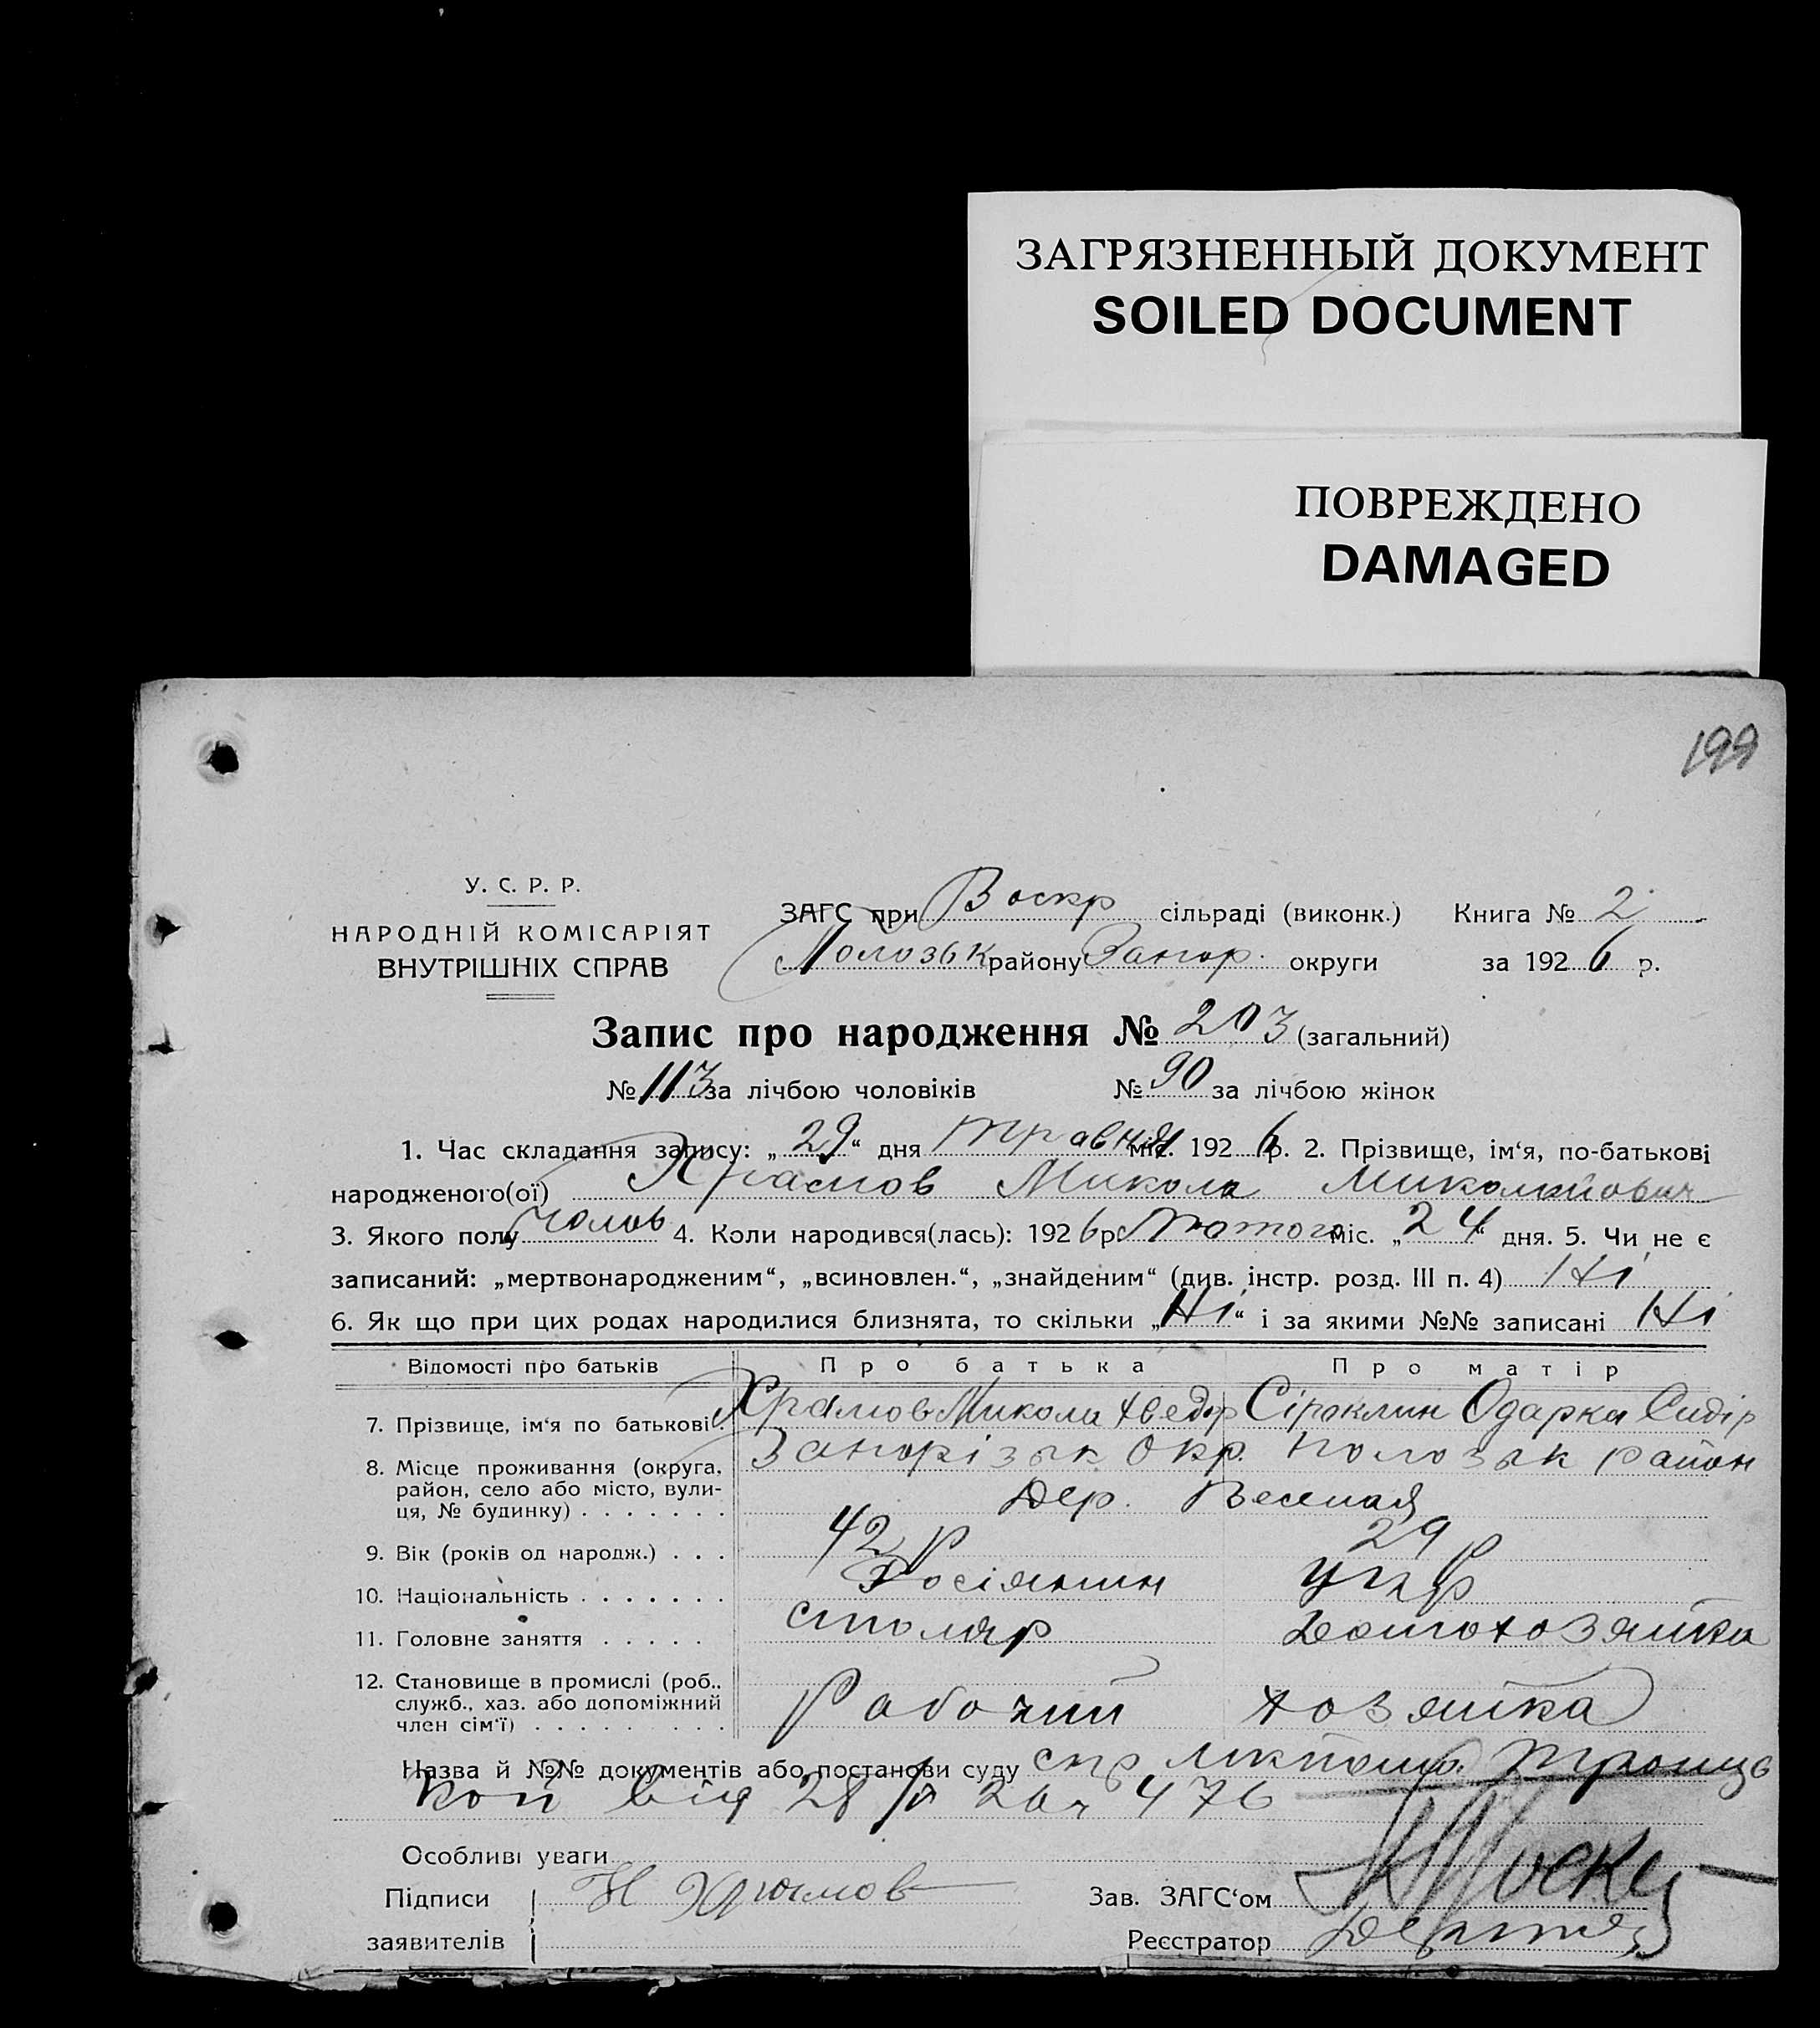 ЗАГРЯЗНЕННЫЙ ДОКУМЕНТ
SOILED DOCUMENT
ПОВРЕЖДЕНО
DAMAGED
199
У. С. Р. Р.
НАРОДНІЙ КОМІСАРІЯТ
ВНУТРІШНІХ СПРАВ
ЗАГС при Воскр сільраді (виконк.) Книга № 2
Полозьк району Запор. округи за 1926 р.
Запис про народження № 203 (загальний)
№ 113 за лічбою чоловіків № 90 за лічбою жінок
1. Час складання запису: „29“ дня травня міс. 1926 р. 2. Прізвище, ім‘я, по-батькові
народженого(ої) Храмов Микола Миколайович
3. Якого полу чолов 4. Коли народився(лась): 1926 р. Лютого міс. „24“ дня. 5. Чи не є
записаний: „мертвонародженим“, „всиновлен.“, „знайденим“ (див. інстр. розд. III п. 4) Ні
6. Як що при цих родах народилися близнята, то скільки „Ні“ і за якими №№ записані Ні
Відомості про батьків Про батька Про матір
7. Прізвище, ім‘я по батькові. Храмов Микола Хведор Сіроклин Одарка Сидір
8. Місце проживання (округа, Запорізьк Окр. Полозьк район
район, село або місто, вули-
ця, № будинку) . . . . . . . Дер. Веселая
9. Вік (років од народж.) . . . 42 р 29 р
10. Національність . . . . . . . Росіянин Укр
11. Головне заняття . . . . . столяр Домохозяйка
12. Становище в промислі (роб.,
служб., хаз. або допоміжний Рабочий хозяйка
член сім‘ї) . . . . . . . . .
Назва й №№ документів або постанови суду спр
кой від 28 476
Особливі уваги
Підписи Н Храмов Зав. ЗАГС‘ом
заявителів Реєстратор